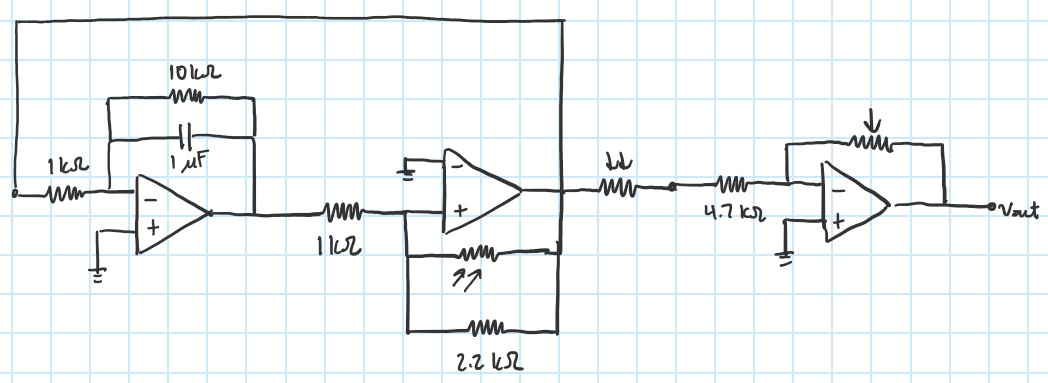 10kΩ
1 μF
1kΩ
−
+
1kΩ
−
+
2.2 kΩ
4.7 kΩ
−
+
Vout